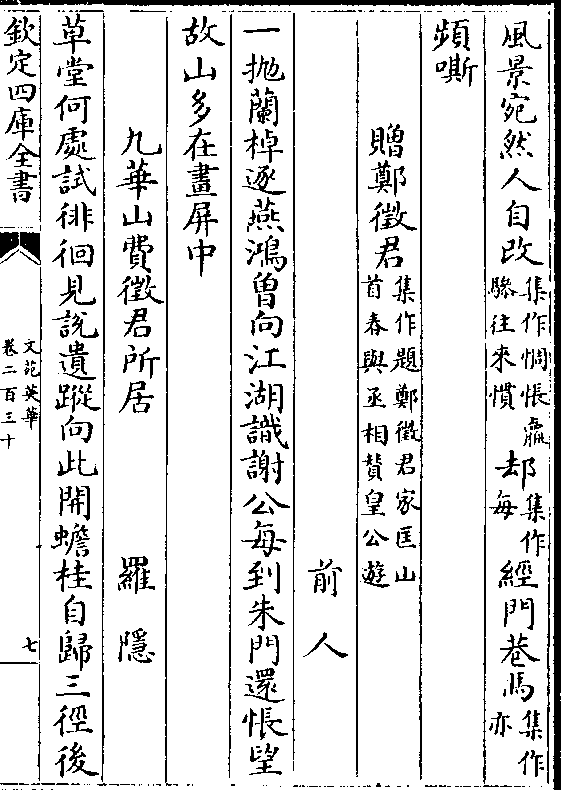 風景宛然人自改集作惆悵羸驂往來慣却集作每經門巷馬集作亦
頻嘶
贈鄭徵君集作題鄭徵君家匡山首春與丞相贊皇公遊
前人
一抛蘭棹逐燕鴻曾向江湖識謝公每到朱門還悵望
故山多在畫屏中
九華山費徵君所居 羅隱
草堂何處試徘徊見說遺蹤向此開蟾桂自歸三徑後
欽定四庫全書
文苑英華
卷二百三十
七